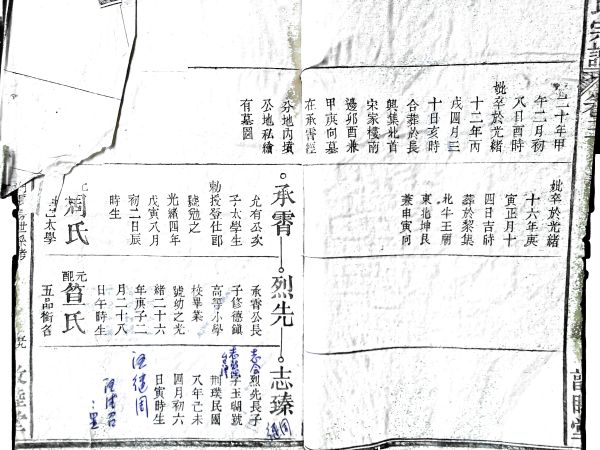 氏宗譜
卷
二十年甲
午二月初
八日酉時
妣卒於光緒
十二年丙
戌四月三
十日亥時
合葬於長
興集北首
宋家樓南
邊卯酉兼
甲庚向墓
在承霄經
分地內墳
公地私繪
有墓圖
妣卒於光緒
十六年庚
寅正月十
四日吉時
葬於黎集
北牛王廟
東北坤艮
兼申寅向
承霄
允有公次
子太學生
勅授登仕郎
號勉之
光緒四年
戊寅八月
初二日辰
時生
周氏
太學
烈先
承霄公長
子修德鎮
高等小學
校畢業
號幼之光
緒二十六
年庚子二
月二十八
日午時生
元配
管氏
五品銜各
志臻
烈先長子
字玉瑚號
荆璞民國
八年己未
四月初六
日寅時生
敦睦堂
敦睦堂